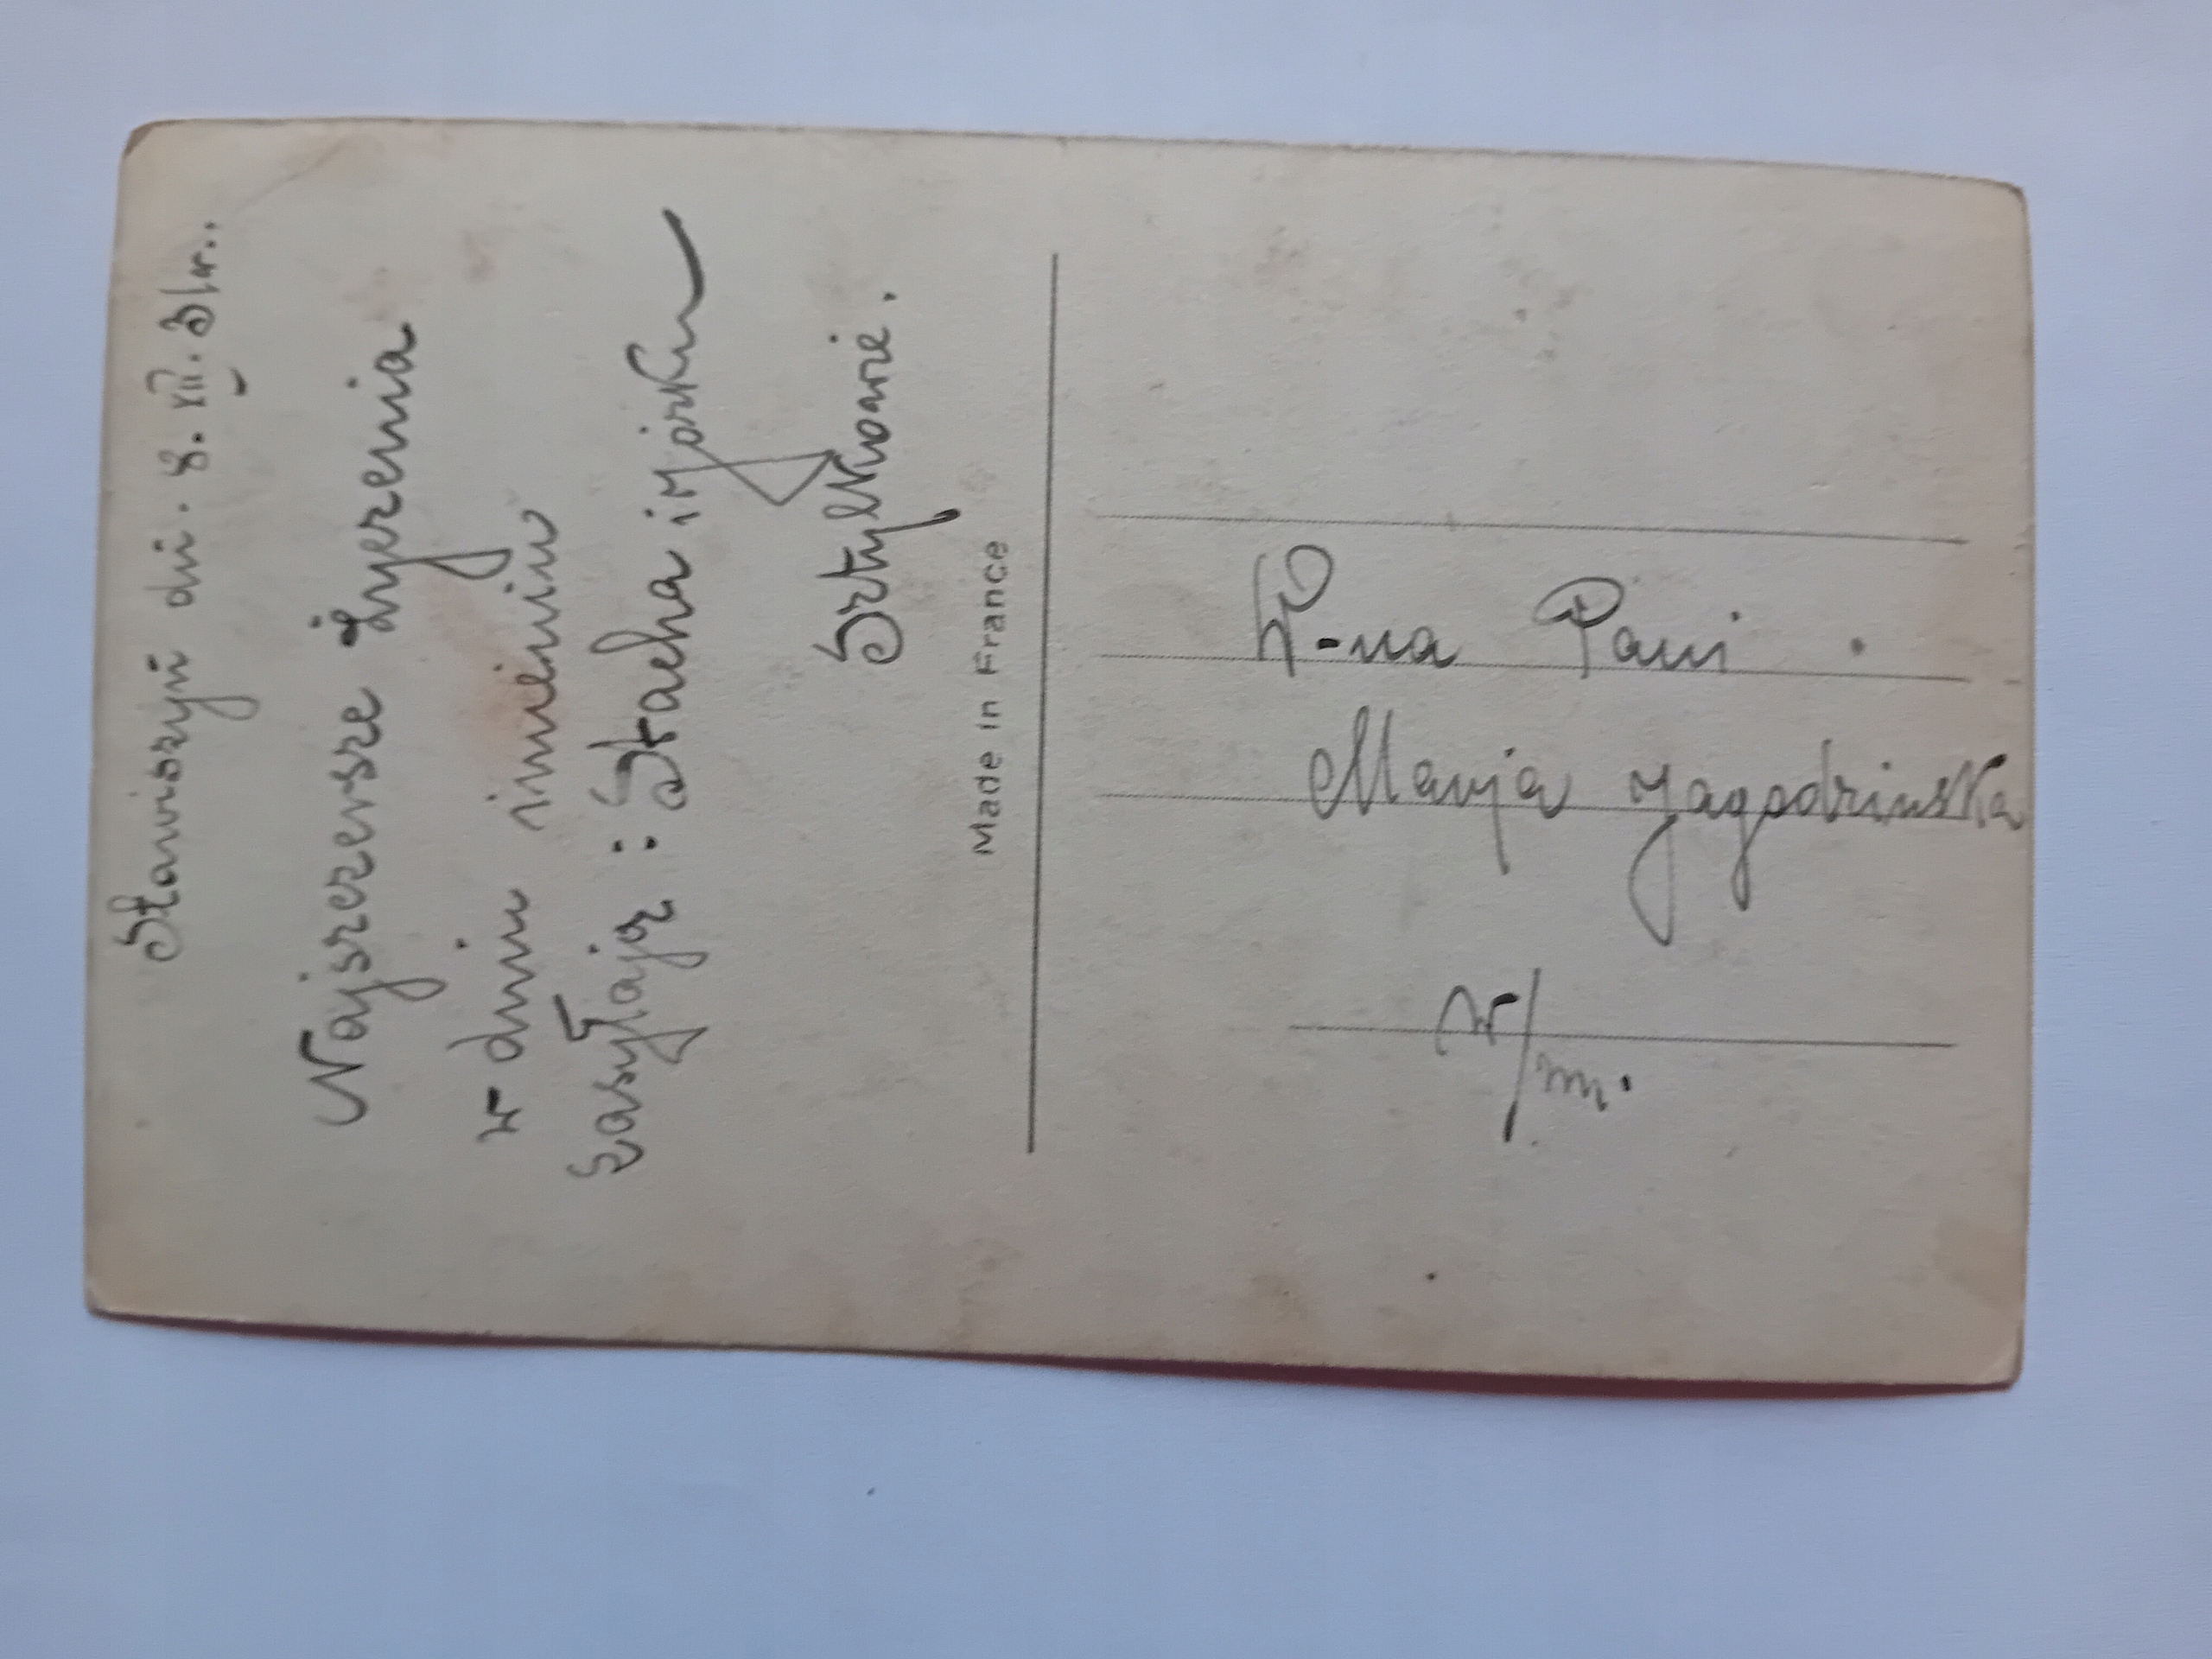 Stawiszyn dn. 8. XII. 31r.
Najszczersze życzenia
w dniu imienin
zasyłają: Stacha i Józku
Made in France
W-na Pani
Marija Jagodzinska
w/m.